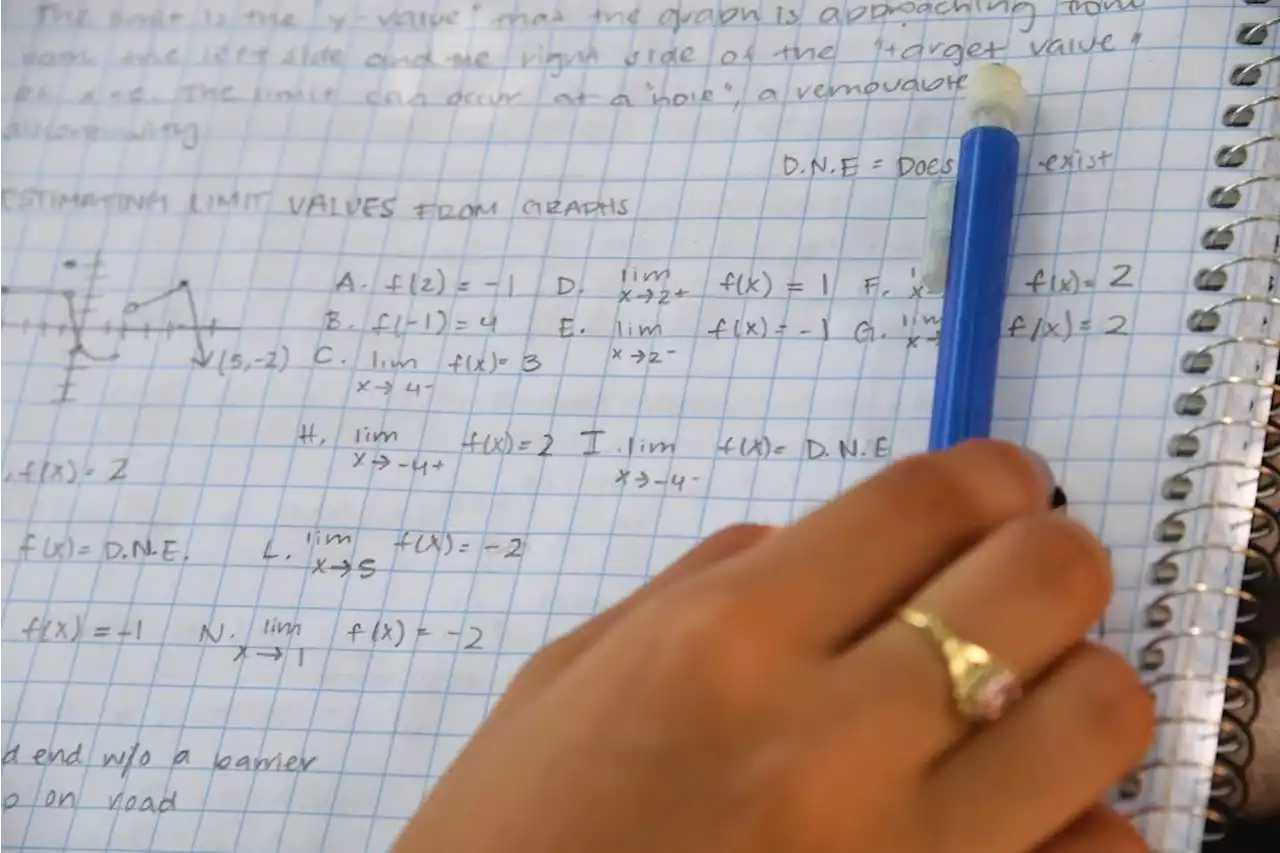 The limit is the "y-value" that the graph is approaching from
the left side and the right side of the "target value"
The limit can occur at a "hole", a removable
D.N.E = Does exist
ESTIMATING LIMIT VALUES FROM GRAPHS
A. f(2) = -1 D. lim x→2+ f(x) = 1 F. f(x) = 2
B. f(-1) = 4 E. lim x→2- f(x) = -1 G. lim f(x) = 2
(5,-2) C. lim x→4- f(x) = 3
H. lim x→-4+ f(x) = 2 I. lim x→-4- f(x) = D.N.E
f(x) = 2
f(x) = D.N.E. L. lim x→5 f(x) = -2
f(x) = -1 N. lim x→1 f(x) = -2
d end w/o a barrier
on road